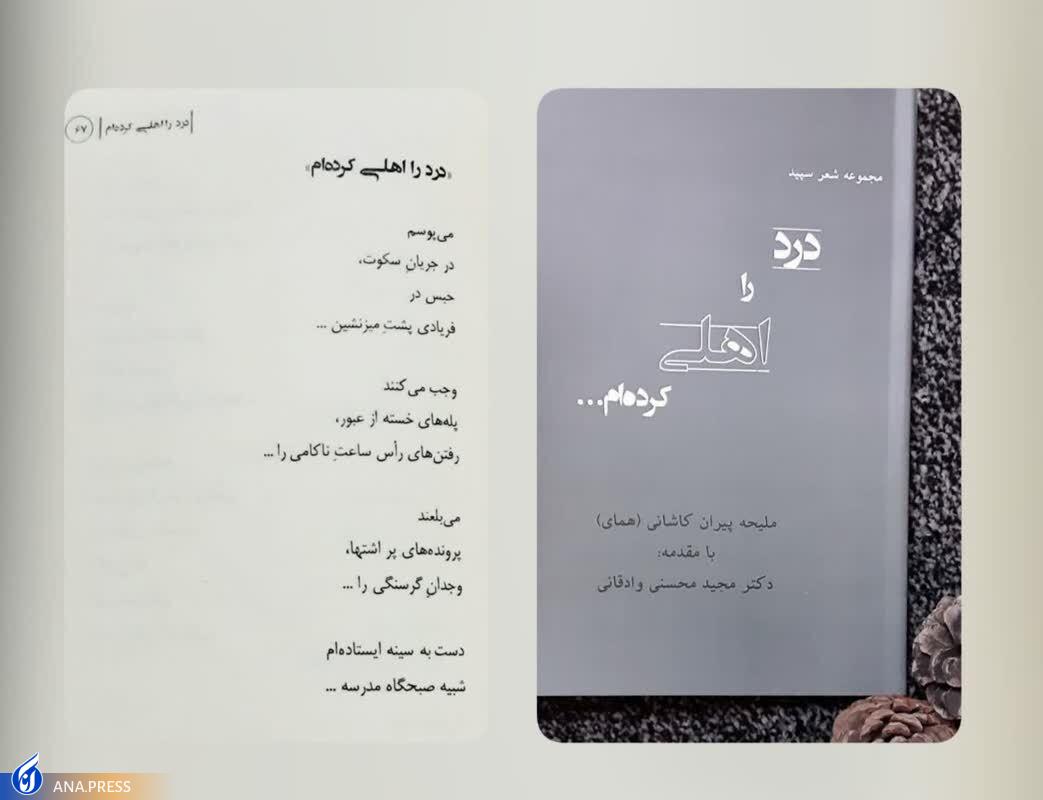 مجموعه شعر سپید
درد
را
اهلی
کرده‌ام...
ملیحه پیران کاشانی (همای)
با مقدمه:
دکتر مجید محسنی وادقانی
درد را اهلی کرده‌ام ۶۷
«درد را اهلی کرده‌ام»
می‌پوسم
در جریانِ سکوت،
حبس در
فریادی پشتِ میزنشین ...
وجب می‌کنند
پله‌های خسته از عبور،
رفتن‌های رأس ساعتِ ناکامی را ...
می‌بلعند
پرونده‌های پر اشتها،
وجدانِ گرسنگی را ...
دست به سینه ایستاده‌ام
شبیه صبحگاه مدرسه ...
ANA.PRESS